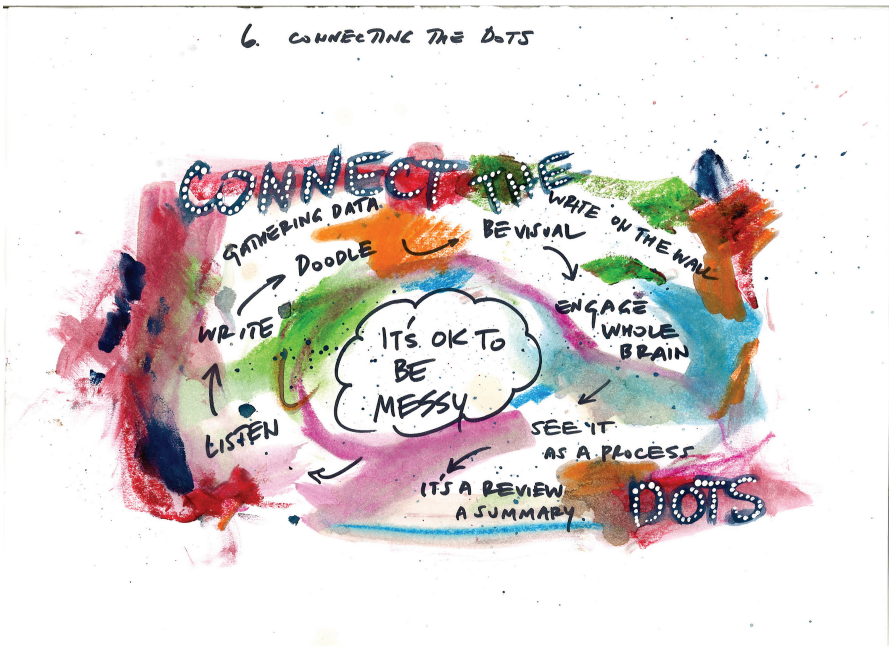 6. CONNECTING THE DOTS
CONNECT THE
GATHERING DATA.
WRITE ON THE WALL
DOODLE
BE VISUAL
WRITE
ENGAGE
WHOLE
BRAIN
IT'S OK TO
BE
MESSY
LISTEN
SEE IT
AS A PROCESS
IT'S A REVIEW
A SUMMARY.
DOTS